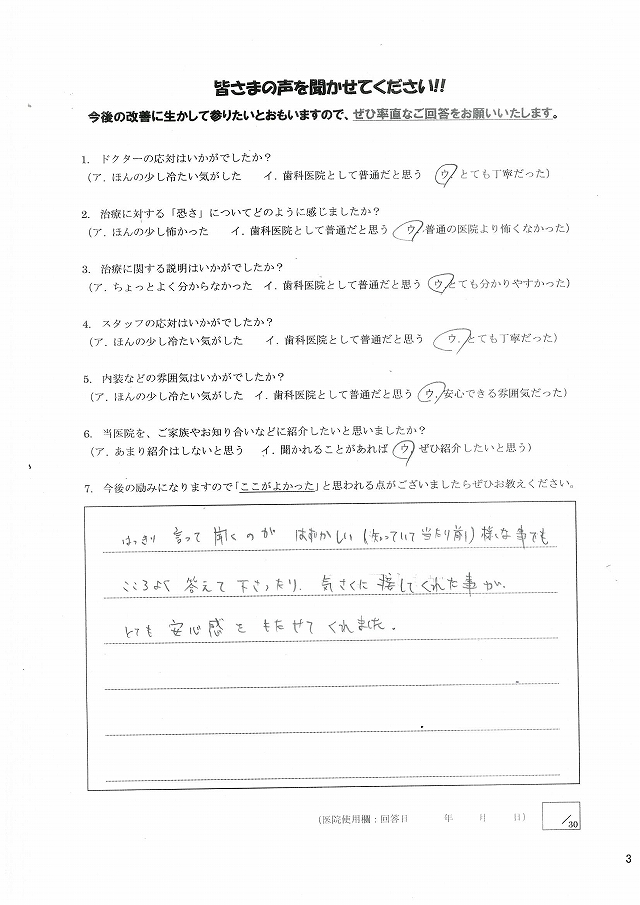 皆さまの声を聞かせてください!!
今後の改善に生かして参りたいとおもいますので、ぜひ率直なご回答をお願いいたします。
1. ドクターの応対はいかがでしたか?
(ア. ほんの少し冷たい気がした イ. 歯科医院として普通だと思う ウ. とても丁寧だった)
2. 治療に対する「恐さ」についてどのように感じましたか?
(ア. ほんの少し怖かった イ. 歯科医院として普通だと思う ウ. 普通の医院より怖くなかった)
3. 治療に関する説明はいかがでしたか?
(ア. ちょっとよく分からなかった イ. 歯科医院として普通だと思う ウ. とても分かりやすかった)
4. スタッフの応対はいかがでしたか?
(ア. ほんの少し冷たい気がした イ. 歯科医院として普通だと思う ウ. とても丁寧だった)
5. 内装などの雰囲気はいかがでしたか?
(ア. ほんの少し冷たい気がした イ. 歯科医院として普通だと思う ウ. 安心できる雰囲気だった)
6. 当医院を、ご家族やお知り合いなどに紹介したいと思いましたか?
(ア. あまり紹介はしないと思う イ. 聞かれることがあれば ウ. ぜひ紹介したいと思う)
7. 今後の励みになりますので「ここがよかった」と思われる点がございましたらぜひお教えください。
はっきり 言って 聞くのが はずかしい (知っていて当たり前) 様な事でも
こころよく 答えて 下さったり、気さくに 接してくれた事が、
とても 安心感を もたせて くれました。
(医院使用欄:回答日 年 月 日)
/30
3